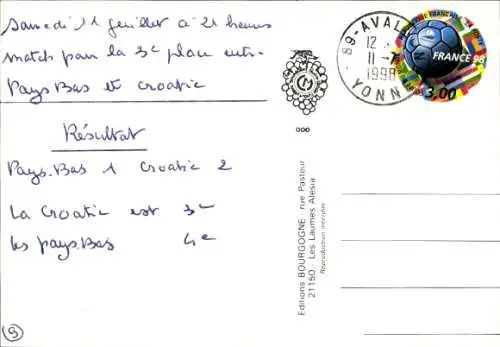 Samedi 11 juillet à 21 heures
match pour la 3e place entre
Pays Bas et Croatie
Résultat
Pays-Bas 1 Croatie 2
La Croatie est 3e
les pays-Bas 4e
9
000
Editions BOURGOGNE, rue Pasteur
21150 - Les Laumes Alésia
Reproduction interdite
89-AVALLON
12
11-7
1998
YONNE
FRANCE 98
3,00